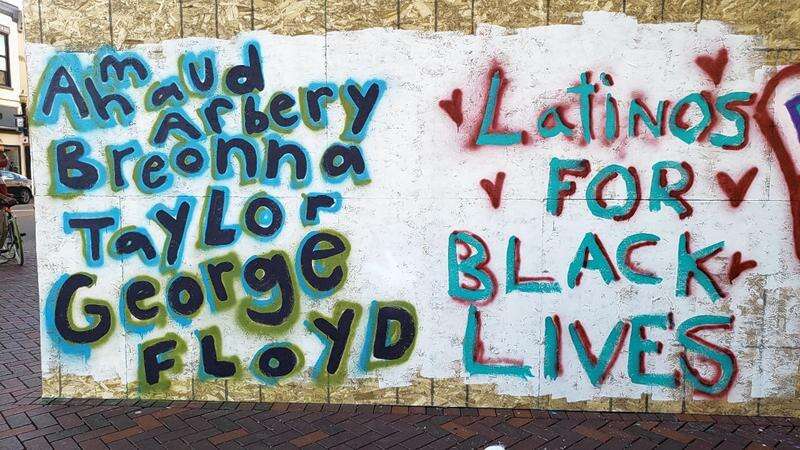 Ahmaud
Arbery
Breonna
Taylor
George
FLOYD
Latino's
FOR
BLACK
LIVES